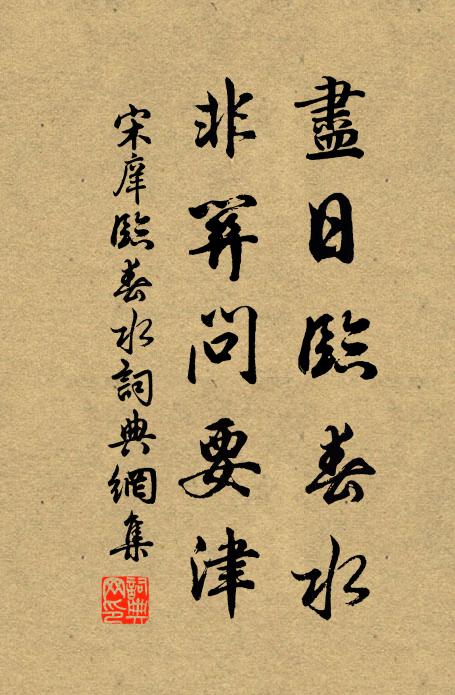 盡日臨春水
非關問要津
宋庠臨春水詞典網集
詞典网印